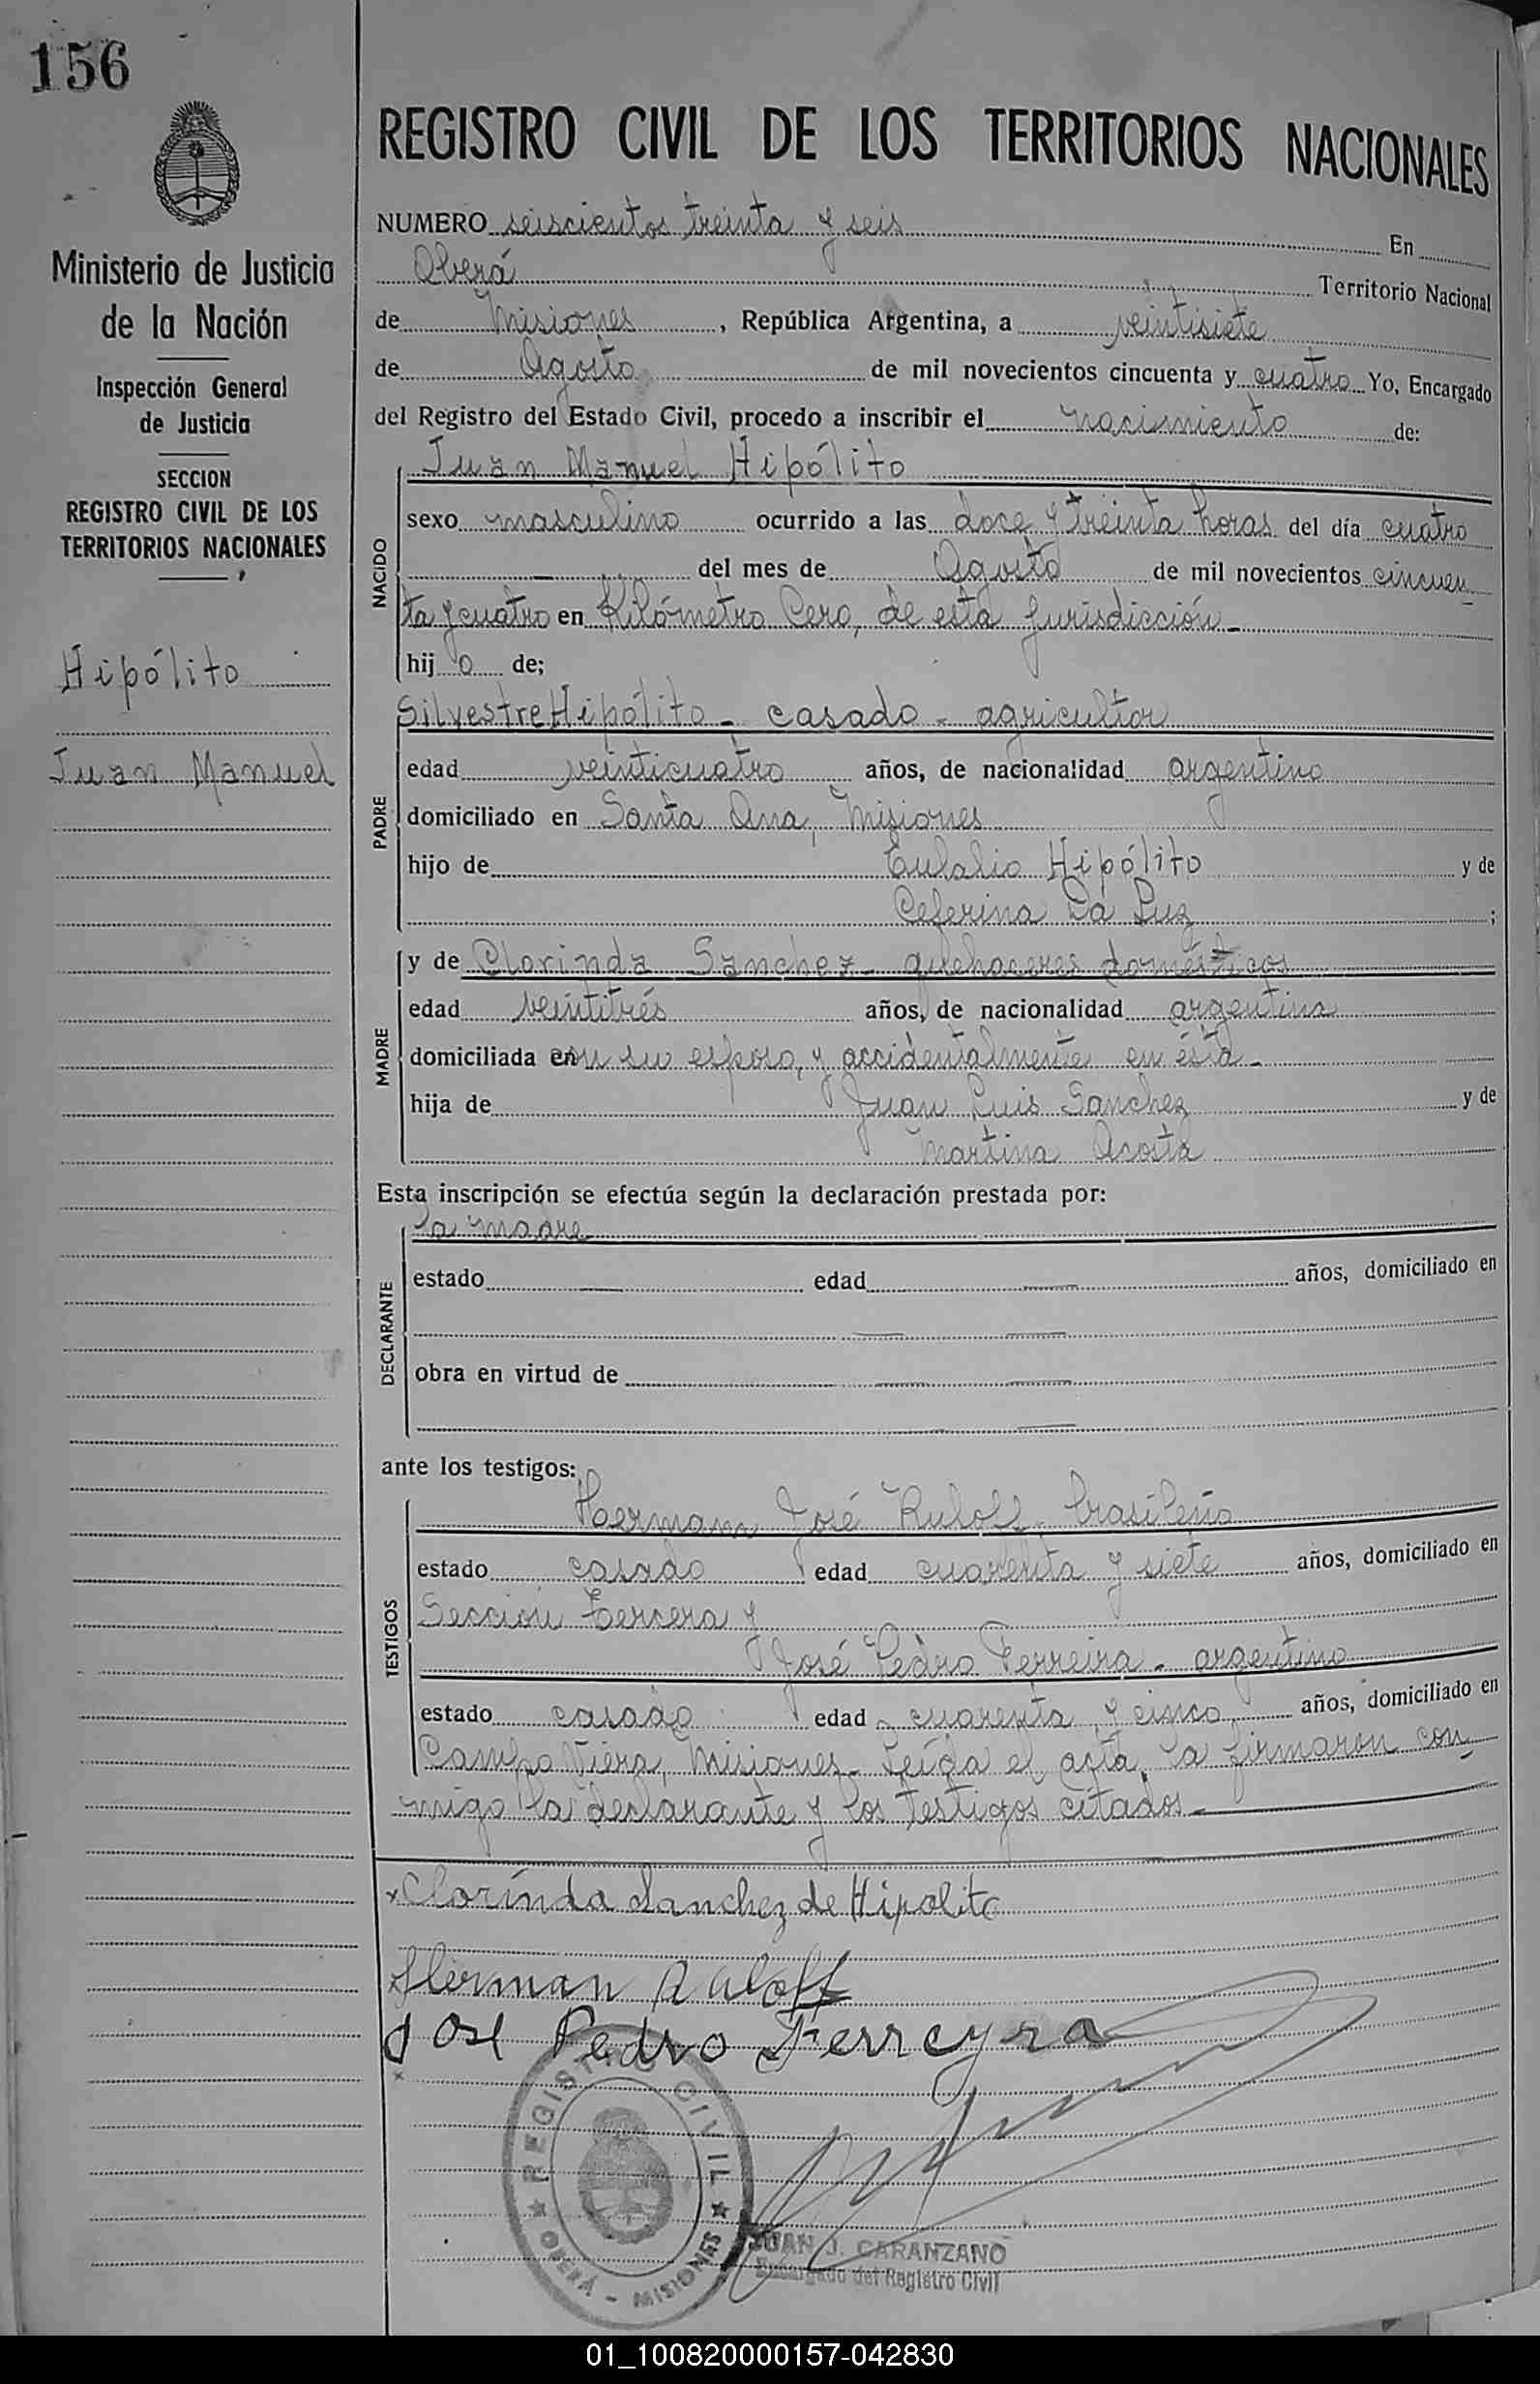 156
REGISTRO CIVIL DE LOS TERRITORIOS NACIONALES
Ministerio de Justicia
de la Nación
Inspección General
de Justicia
SECCION
REGISTRO CIVIL DE LOS
TERRITORIOS NACIONALES
Hipólito
Juan Manuel
NUMERO seiscientos treinta y seis En
Oberá Territorio Nacional
de Misiones, República Argentina, a veintisiete
de Agosto de mil novecientos cincuenta y cuatro Yo, Encargado
del Registro del Estado Civil, procedo a inscribir el nacimiento de:
Juan Manuel Hipólito
NACIDO
sexo masculino ocurrido a las doce y treinta horas del día cuatro
del mes de Agosto de mil novecientos cincuen
ta y cuatro en Kilómetro Cero, de esta jurisdicción.-
hij o de;
Silvestre Hipólito - casado - agricultor
PADRE
edad veinticuatro años, de nacionalidad argentino
domiciliado en Santa Ana, Misiones
hijo de Eulalio Hipólito y de
Ceferina Da Luz ;
MADRE
y de Clorinda Sanchez - quehaceres domésticos
edad veintitrés años, de nacionalidad argentina
domiciliada en con su esposo, y accidentalmente en ésta -
hija de Juan Luis Sanchez y de
Martina Acosta
Esta inscripción se efectúa según la declaración prestada por:
la madre
DECLARANTE
estado edad años, domiciliado en
obra en virtud de
ante los testigos:
TESTIGOS
Hermann José Ruloff - brasileño
estado casado edad cuarenta y siete años, domiciliado en
Sección Tercera y
José Pedro Ferreira - argentino
estado casado edad cuarenta y cinco años, domiciliado en
Campo Viera, Misiones.- Leída el acta, la firmaron con
migo la declarante y los testigos citados.-
x Clorinda Sanchez de Hipolito
x Herman Ruloff
Jose Pedro Ferreyra
x
REGISTRO CIVIL
OBERÁ - MISIONES
JUAN J. CARANZANO
Encargado del Registro Civil
01_100820000157-042830